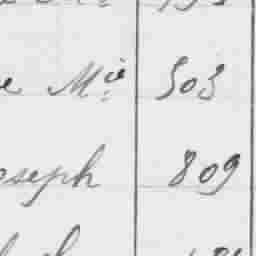 e M.ie 503
oseph 809